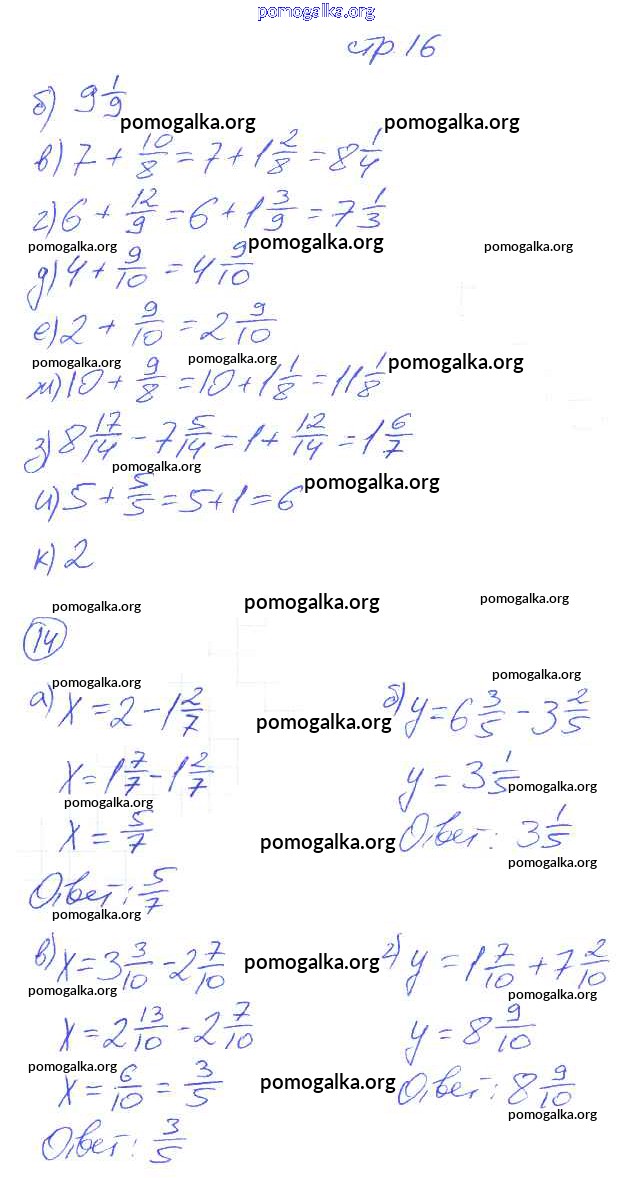 pomogalka.org
стр 16
б) 9 1/9
pomogalka.org pomogalka.org
в) 7 + 10/8 = 7 + 1 2/8 = 8 1/4
г) 6 + 12/9 = 6 + 1 3/9 = 7 1/3
pomogalka.org pomogalka.org pomogalka.org
д) 4 + 9/10 = 4 9/10
е) 2 + 9/10 = 2 9/10
pomogalka.org pomogalka.org pomogalka.org
ж) 10 + 9/8 = 10 + 1 1/8 = 11 1/8
з) 8 17/14 - 7 5/14 = 1 + 12/14 = 1 6/7
pomogalka.org
и) 5 + 5/5 = 5 + 1 = 6 pomogalka.org
к) 2
pomogalka.org pomogalka.org pomogalka.org
14
pomogalka.org pomogalka.org
а) x = 2 - 1 2/7 pomogalka.org б) y = 6 3/5 - 3 2/5
x = 1 7/7 - 1 2/7 y = 3 1/5 pomogalka.org
pomogalka.org
x = 5/7 pomogalka.org Ответ: 3 1/5
pomogalka.org
Ответ: 5/7
pomogalka.org
в) x = 3 3/10 - 2 7/10 pomogalka.org г) y = 1 7/10 + 7 2/10
pomogalka.org pomogalka.org
x = 2 13/10 - 2 7/10 y = 8 9/10
pomogalka.org
x = 6/10 = 3/5 pomogalka.org Ответ: 8 9/10
pomogalka.org
Ответ: 3/5